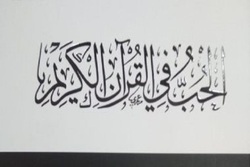 الحُبُّ فِي القُرْآنِ الكَرِيمِ